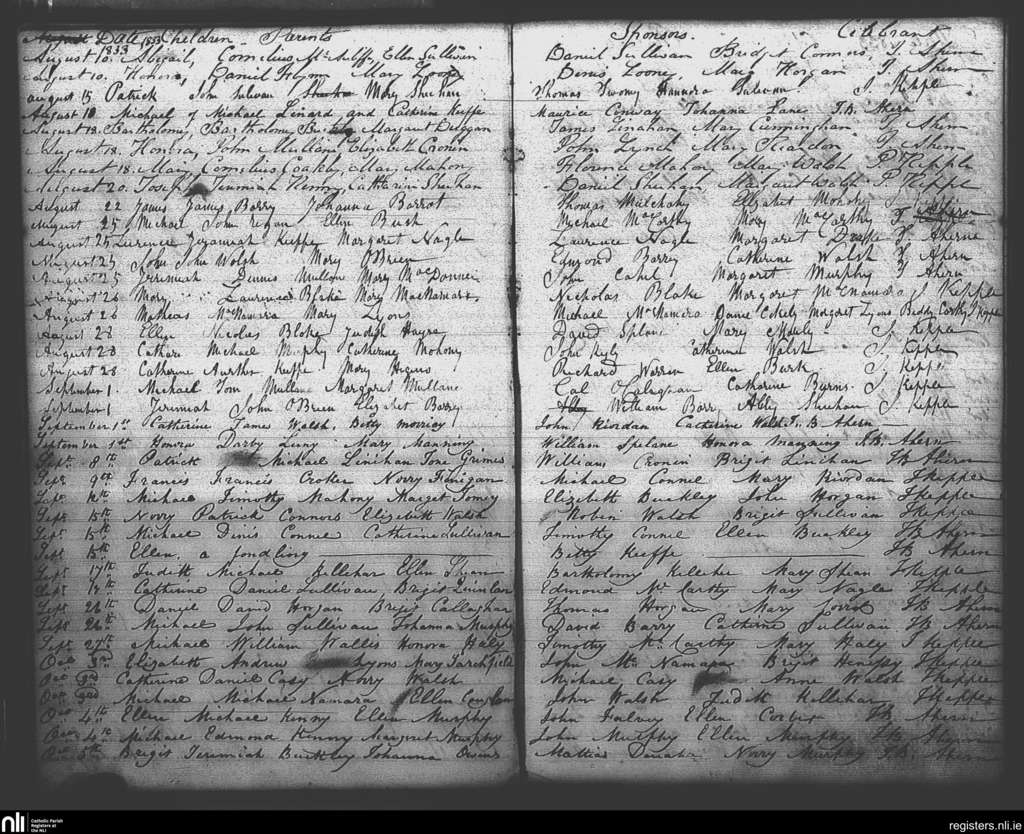 Date 1833 Children Parents Sponsors. Celebrant
August 10. 1833 Abigail, Cornelius McAuliffe, Ellen Sullivan Daniel Sullivan Bridget Connors
August 10. Honora, Daniel Flynn Mary Looney Denis Looney, Mary Horgan
August 15 Patrick John Sulivan Mary Sheehan Thomas Twomy Hannora Sulivan J. Kepple
August 18 Michael of Michael Linard and Cathrin Keeffe Maurice Conway Johanna Lane J.B. Ahern
August 18. Bartholomy, Bartholomy Margaret Duggan James Linahan Mary Cunningham
August 18. Honora, John Mullane Elizabeth Cronin John Lynch Mary
August 18. Mary, Cornelius Coakly, Mary Mahony Florence Mahony Mary Walsh P. Kepple
August 20. Joseph Jeremiah Henry, Catherine Sheehan Daniel Sheehan, Margaret Walsh P. Kepple
August 22 James James Barry Johanna Barrot Thomas Mulchahy Elizabet
August 25 Michael John Regan Ellen Bush Michael McCarthy Mary McCarthy
August 25 Laurence Jeremiah Keeffe Margaret Nagle Laurence Nagle Margaret Drake Aherne
August 25 John John Walsh Mary OBrien Edmond Barry Catherine Walsh Ahern
August 25 Jeremiah Dennis Mullone Mary MacDonnel John Cahel Margaret Murphy Ahern
August 26 Mary Laurence Blake Mary MacNamara Nicholas Blake Margaret McNamara J Kepple
August 26 Matheas MacNamara Mary Lyons Michael McNamara Daniel Cokely Margaret Lyons Biddy Carthy J Kepple
August 28 Ellen Nicolas Blake Judith Hayes David Mary J. Keppel
August 28 Cathern Michael Murphy Catherine Mohony John Catherine Walsh J. Kepple
August 28 Catherine Arthur Keeffe Mary Higens Richard Warren Ellen Burk J. Kepple
September 1. Michael Tom Mullane Margaret Mullane Cal Catharine Byrns J. Kepple
September 1 Jeremiah John OBrien Elizabet Barry William Barry Abby Sheehan J. Kepple
September 1st Catherine James Walsh, Betty morrisy John Riordan Catherine Walsh J. B Ahern
September 1st Honora Darby Luny Mary Manning William Spelane Honora Manning J.B. Ahern
Sept. 8th Patrick Michael Linihan Jone Grimes William Cronin Brigit Linihan JB Ahern
Sept. 9th Francis Francis Croker Norry Finigan Michael Connel Mary Riordan J Kepple
Sept. Michael Timothy Mahony Marget Tomey Elizebeth Buckley John Horgan J Kepple
Sept 15th Norry Patrick Connors Elizabeth Walsh Robin Walsh Brigit Sullivan J Kepple
Sept. 15th Michael Dinis Connel Catherine Sullivan Timothy Connel Ellen Buckley JB Ahern
Sept 15th Ellen, a fondling Betty Keeffe JB Ahern
Sept 17th Judith Michael Kellehar Ellen Shean Bartholomy Kelleher Mary Shean J Kepple
Sept. Catherine Daniel Sullivan, Brigit Quinlan Edmond Mc Carthy Mary Nagle J Kepple
Sept. Danyel David Horgan Brigit Callaghan Thomas Horgan Mary JB Ahern
Sept. Michael John Sullivan Johanna Murphy David Barry Catherne Sullivan JB Ahern
Sept 27th Michael William Wallis Honora Haly Timothy McCarthy Mary Haly J Kepple
Oct. 3rd Elizabeth Andrew Lyons Mary Tarchfield John McNamara Brigit Henessy J Kepple
Oct 3rd Catherine Daniel Casy Norry Walsh Michael Casy Anne Walsh J Kepple
Oct. 3rd Michael Michael Namara Ellen Coughlan John Walsh Judith Kellehar J Kepple
Oct 4th Ellen Michael Kenny Ellen Murphy John Ellen Corbit JB Ahern
Oct. 4th Michael Edmond Kenny Margret Murphy John Murphy Ellen Murphy JB Ahern
Oct 5th Brigit Jeremiah Buckley Johanna Owens Mathias Norry Murphy J.B. Ahern
nli Catholic Parish Registers at the NLI registers.nli.ie